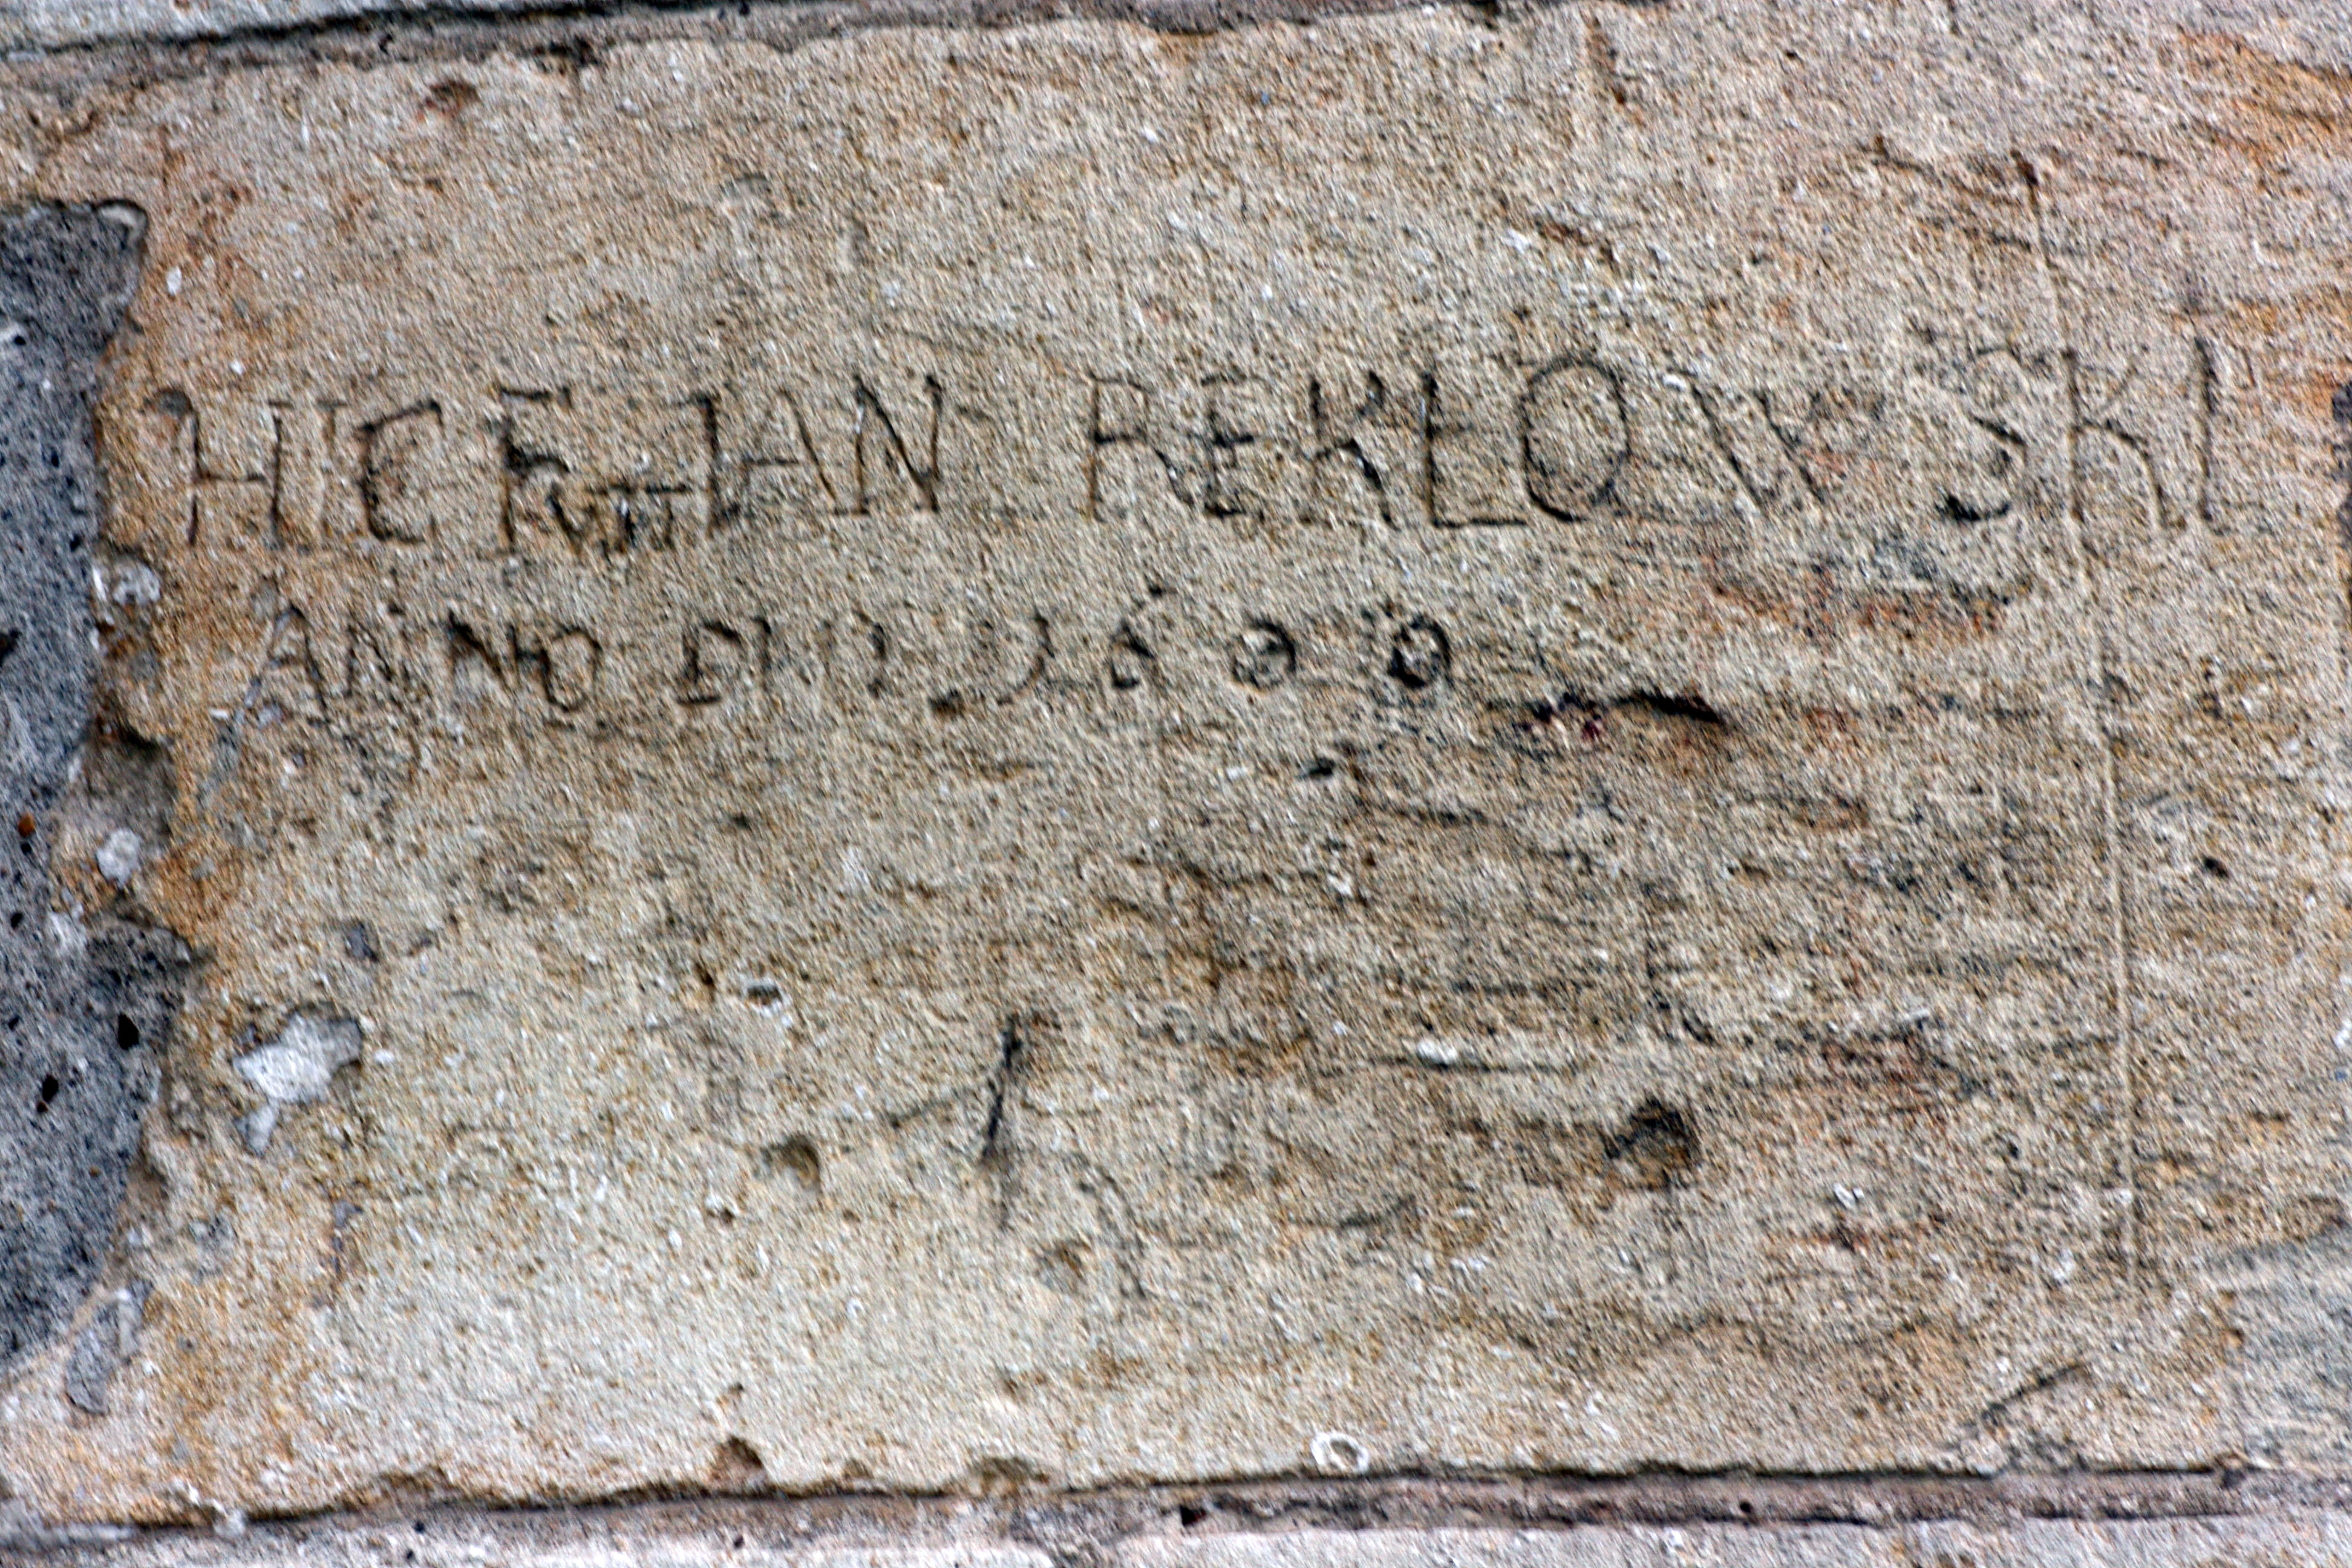 HIC FVIT IAN REKLOWSKI
ANNO 1600